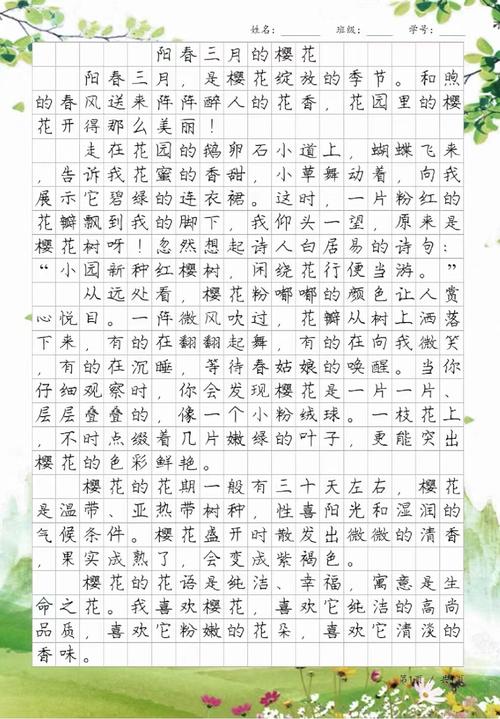 姓名：______ 班级：____ 学号：____
阳春三月的樱花
阳春三月，是樱花绽放的季节。和煦
的春风送来阵阵醉人的花香，花园里的樱
花开得那么美丽！
走在花园的鹅卵石小道上，蝴蝶飞来
，告诉我花蜜的香甜，小草舞动着，向我
展示它碧绿的连衣裙。这时，一片粉红的
花瓣飘到我的脚下，我仰头一望，原来是
樱花树呀！忽然想起诗人白居易的诗句：
“小园新种红樱树，闲绕花行便当游。”
从远处看，樱花粉嘟嘟的颜色让人赏
心悦目。一阵微风吹过，花瓣从树上洒落
下来，有的在翩翩起舞，有的在向我微笑
，有的在沉睡，等待春姑娘的唤醒。当你
仔细观察时，你会发现樱花是一片一片、
层层叠叠的，像一个小粉绒球。一枝花上
，不时点缀着几片嫩绿的叶子，更能突出
樱花的色彩鲜艳。
樱花的花期一般有三十天左右，樱花
是温带、亚热带树种，性喜阳光和湿润的
气候条件。樱花盛开时散发出微微的清香
，果实成熟了，会变成紫褐色。
樱花的花语是纯洁、幸福，寓意是生
命之花。我喜欢樱花，喜欢它纯洁的高尚
品质，喜欢它粉嫩的花朵，喜欢它清淡的
香味。